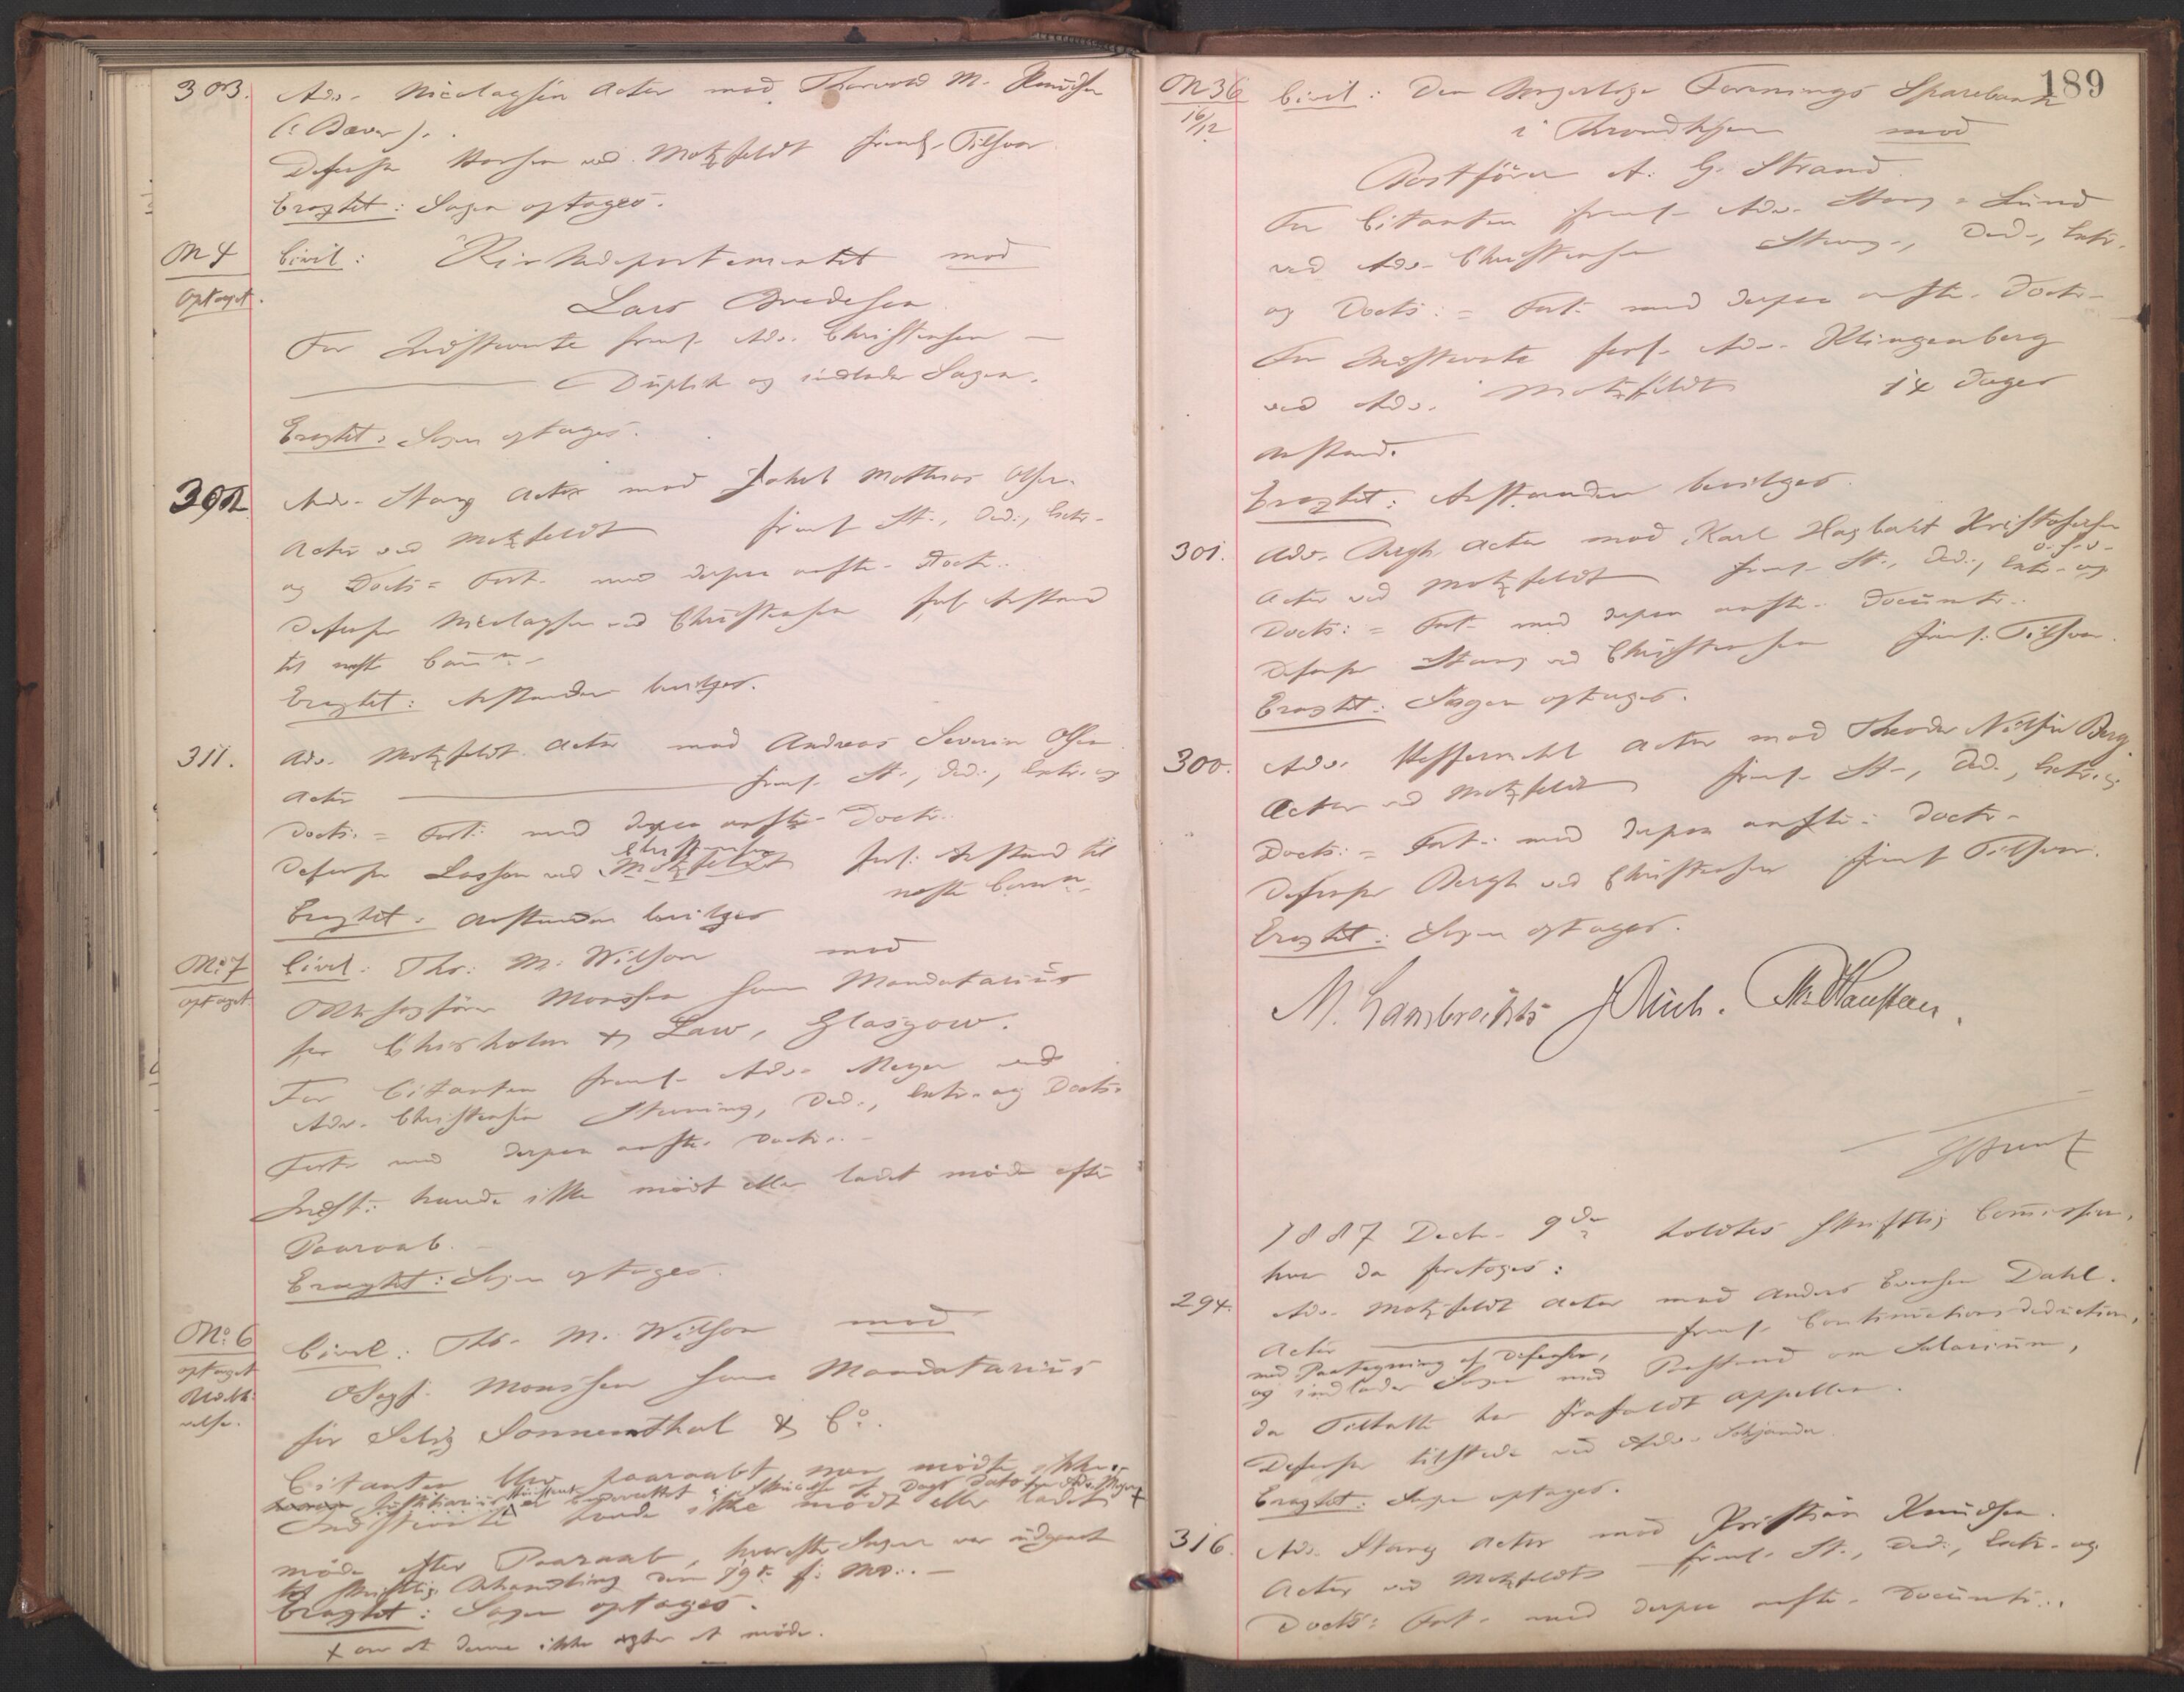 303. Adv. Nicolaysen Actor mod Thorvald M. Knudsen
(: Bæver).
Defensor Horsen ved Motzfeldt freml. Tilsvar
Eragtet: Sagen optages.
N 4 Civil: Kirkedepartementet mod
optaget. Lars Bredesen
For Indstevnte freml. Adv. Christensen —
Duplik og indlader Sagen.
Eragtet: Sagen optages.
Adv. Stang Actor mod Jakob Mathias Olsen.
Actor ved Motzfeldt freml St., Ded., Extr.
og Docts = Fort. med derpaa anfte. Doctr.
Defensor Nicolaysen ved Christensen forl. Anstand
til næste Comn.
Eragtet: Anstanden bevilges.
311. Adv. Motzfeldt Actor mod Andreas Severin Olsen
Actor freml. St., Ded., Extr. og
Docts. = Fort. med derpaa anfte Doctr.
Christensen
Defensor Lasson ved Motzfeldt forl. Anstand til
næste Comn.
Eragtet. Anstanden bevilges
No. 7 Civil: Th. M. Wilson mod
optaget. O.R.sagfører Monssen som Mandatarius
for Chisholm & Law, Glasgow.
For Citanten freml. Adv. Meyer ved
Adv. Christensen Stevning, Ded., Extr. og Docts.
Fort. med derpaa anfte. Doctr.
Indst. havde ikke mødt eller ladet møde efter
Paaraab.
Eragtet: Sagen optages.
No. 6 Civil: Th. M. Wilson mod
optaget OSagf. Monssen som Mandatarius
for Selig Sonnenthal & Co.
Citanten blev paaraabt men mødte ikke.
Justitiarius er berettet i Skrivelse af Dags Dato fra Adv. Meyer x
Indstevnte havde ikke mødt eller ladet
møde efter Paaraab, hvorefter Sagen var udgaaet
til skriftlig Behandling den 19de f. M.
Eragtet: Sagen optages.
x om at denne ikke agter at møde.
189
N 36 Civil: Den Borgerlige Forenings Sparebank
16/12 i Throndhjem mod
Postfører A. G. Strand.
For Citanten freml. Adv. Stang = Lund
ved Adv. Christensen Stevn., Ded., Extr.
og Docts: = Fort. med derpaa anfte. Doctr.
For Indstevnte forl. Adv. Klingenberg
ved Adv. Motzfeldt 14 Dages
Anstand.
Eragtet: Anstanden bevilges.
301. Adv. Bergh Actor mod Karl Hagbart Kristofersen
o. fl.
Actor ved Motzfeldt freml. St., Ded., Extr. og
Docts: = Fort. med derpaa anfte. Documtr.
Defensor Stang ved Christensen freml. Tilsvar.
Eragtet: Sagen optages.
300. Adv. Heffermehl Actor mod Theodor Nilsen Berg.
Actor ved Motzfeldt freml. St., Ded., Extr. og
Docts: = Fort. med derpaa anfte. Doctr.
Defensor Bergh ved Christensen freml Tilsvar.
Eragtet: Sagen optages.
M. Lambrechts
1887 Decbr. 9de holdtes skriftlig Commission,
hvor da foretoges:
294. Adv. Motzfeldt Actor mod Anders Evensen Dahl.
Actor freml. Continuationsdeduction,
med Paategning af Defensor,
og indlader Sagen med Paastand om Salarium,
da Tiltalte har frafaldt Appellen.
Defensor tilstede ved Adv. Schjander.
Eragtet: Sagen optages.
316. Adv. Stang Actor mod Kristian Knudsen.
Actor ved Motzfeldt freml. St., Ded., Extr. og
Docts: Fort. med derpaa anfte. Documtr.